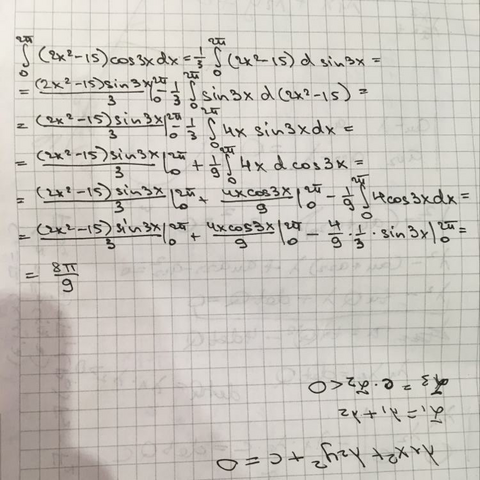 ∫₀^2π (2x²-15)cos3xdx = 1/3 ∫₀^2π (2x²-15) d sin3x =
= (2x²-15)sin3x/3 |₀^2π - 1/3 ∫₀^2π sin3x d(2x²-15) =
= (2x²-15)sin3x/3 |₀^2π - 1/3 ∫₀^2π 4x sin3xdx =
= (2x²-15)sin3x/3 |₀^2π + 1/9 ∫₀^2π 4x d cos3x =
= (2x²-15)sin3x/3 |₀^2π + 4xcos3x/9 |₀^2π - 1/9 ∫₀^2π 4cos3xdx =
= (2x²-15)sin3x/3 |₀^2π + 4xcos3x/9 |₀^2π - 4/9 · 1/3 · sin3x |₀^2π =
= 8π/9
λ₁x²+λ₂y²+c=0
I₁=λ₁+λ₂
I₃=c·I₂<0